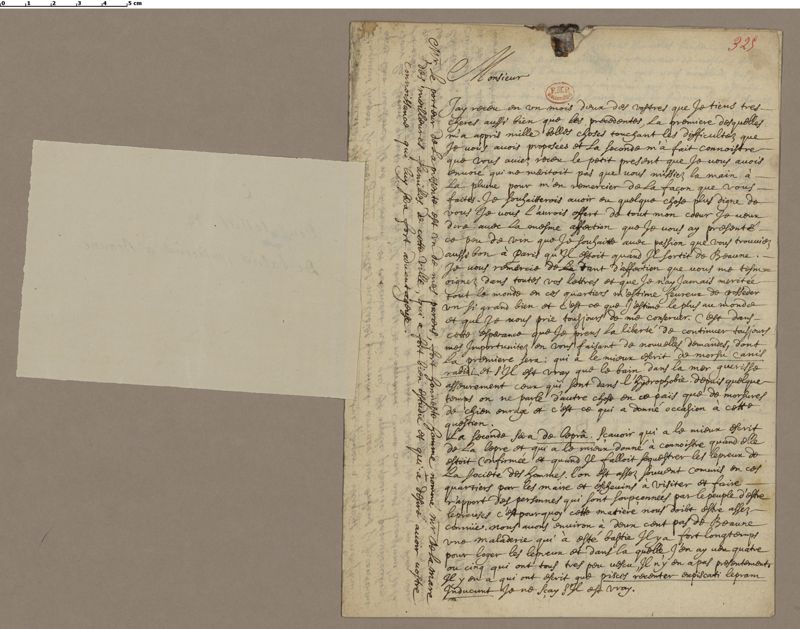 0 1 2 3 4 5 cm
325
Monsieur
J'ay receu en un mois deux des vostres que Je tiens tres
cheres aussi bien que les precedentes. La premiere desquelles
m'a appris mille belles choses touchant les difficultez que
Je vous avois proposees et La seconde m'a fait connoistre
que vous aviez receu le petit present que Je vous avois
envoié qui ne meritoit pas que vous missiez la main à
La plume pour m'en remercier de La façon que vous
faites. Je souhaiterois avoir eu quelque chose plus digne de
vous Je vous L'aurois offert de tout mon cœur Je veux
dire avec La mesme affection que Je vous ay presenté
ce peu de vin que Je souhaite avec passion que vous trouviez
aussi bon à Paris qu'Il estoit quand Il sortit de Beaune.
Je vous remercie de tant d'affection que vous me tesm-
oignez dans toutes vos lettres et que Je n'ay Jamais meritée
tout le monde en ces quartiers m'estime heureux de posseder
un si grand bien et c'est ce que J'estime le plus au monde
et que Je vous prie toujours de me conserver. C'est dans
cette esperance que Je prens la liberté de continuer toujours
mes Importunitez en vous faisant de nouvelles demandes, dont
La premiere sera: qui à le mieux escrit de morsu canis
rabidi et s'Il est vray que le bain dans La mer guerisse
asseurement ceux qui sont dans L'hydrophobie depuis quelque
temps on ne parle d'autre chose en ce païs que de morsures
de chien enragé et c'est ce qui a donné occasion à cette
question.
La seconde sera de Lepra. Scavoir qui a le mieux escrit
de La Lepre et qui a le mieux donné à connoistre quand elle
estoit confirmée et quand Il falloit sequestrer les lepreux de
La societé des hommes. L'on est assez souvent commis en ces
quartiers par les maire et eschevins à visiter et faire
rapport des personnes qui sont soupçonnées par le peuple d'estre
lepreuses c'est pourquoy cette matiere nous doibt estre assez
connüe. nous avons environ à deux cent pas de Beaune
une maladerie qui à esté bastie Il y a fort longtemps
pour loger les lepreux et dans la quelle J'en ay veu quatre
ou cinq qui ont tous tres peu vescu. Il n'y en a pas presentement
Il y en à qui ont escrit que pisces recenter expiscati lepram
Inducunt Je ne scay s'Il est vray.
Mr Le porteur de la presente est un de mes parens fort honneste homme nommé Mr de la mare
des meilleures familles de cette ville qui a fort bien estudié et qui a desiré avoir vostre
connoissance qui luy sera fort advantageuse